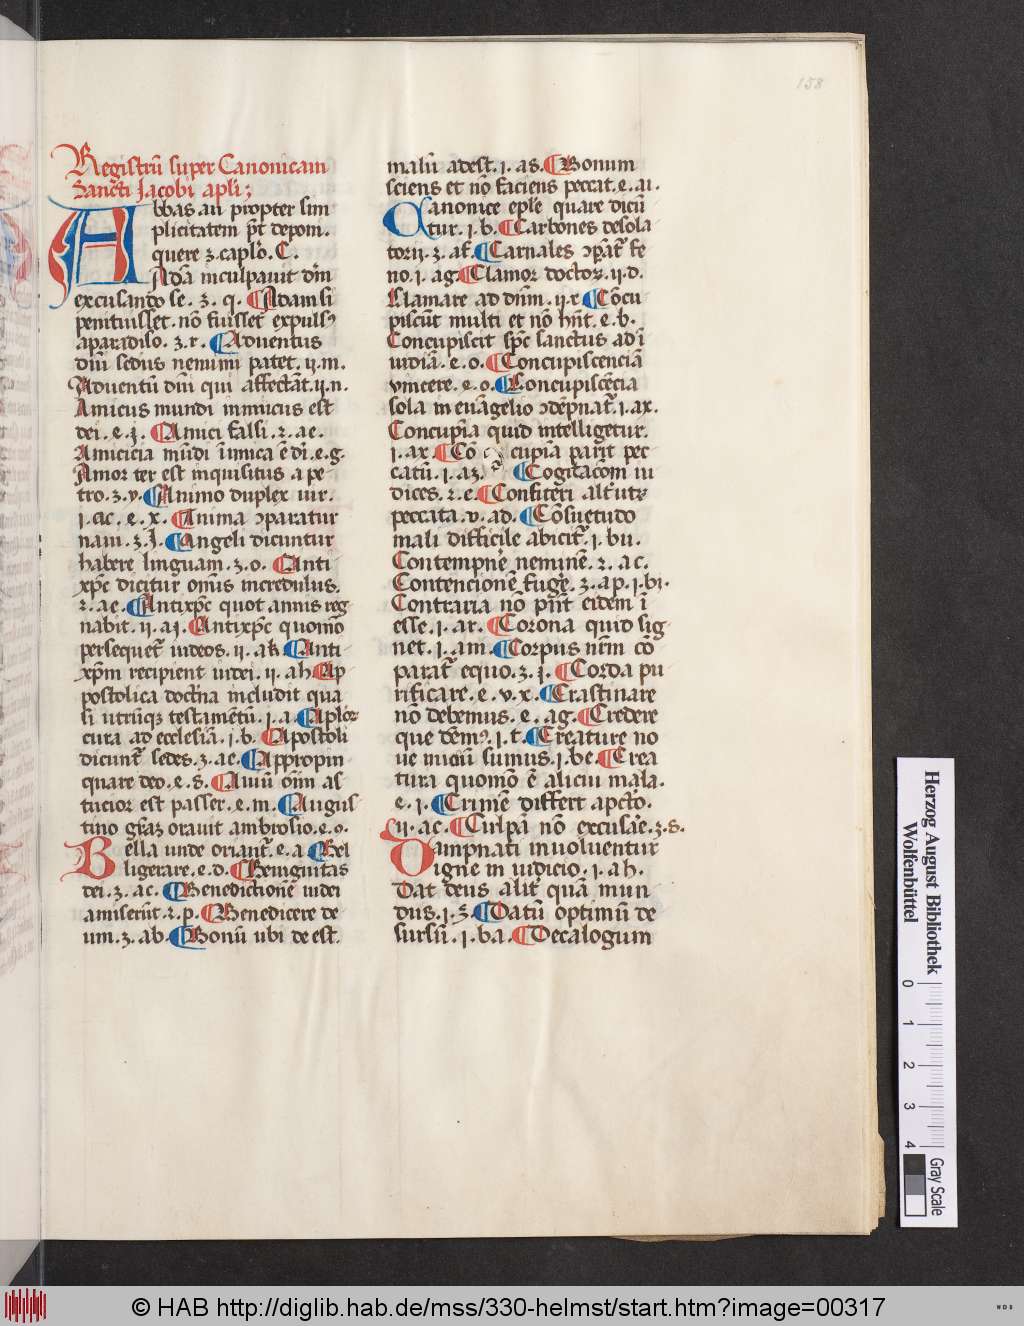 158
Registrū super Canonicam
Sancti Jacobi apl̄i;
Abbas an propter sim
plicitatem pt̄ depom.
quere .3. caplo. C.
Adā inculpauit dīm
excusando se. 3. q. ¶Adam si
penituisset. nō fuisset expulsꝰ
a paradiso. 3. r. ¶Aduentus
dīn sedius nemini patet. ij. m.
Aduentū dīn qui affectāt. ij. n.
Amicus mundi inimicus est
dei. e. j. ¶Amici falsi. 2. ae.
Amicicia mūdi īimica ē dī. e. g.
Amor ter est inquisitus a pe
tro. 3. v. ¶Animo duplex uir.
j. ac. e. x. ¶Anima ↄparatur
naui. 3. l. ¶Angeli dicuntur
habere linguam. 3. o. ¶Anti
xp̄c dicitur om̄is incredulus.
2. ae. ¶Antixp̄c quot annis reg
nabit. ij. aj. ¶Antixp̄c quomō
persequet᷑ iudeos. ij. ak ¶Anti
xp̄m recipient iudei. ij. ah ¶Ap
postolica doctⁱna includit qua
si utrūqꝫ testamētū. j. a. ¶Aploꝝ
cura ad ecclesiā. j. b. ¶Apostoli
dicunt᷑ sedes. 3. ae. ¶Appropin
quare deo. e. s. ¶Auiū oīm as
tucior est passer. e. m. ¶Augus
tino gr̄as orauit ambrosio. e. 9.
Bella unde oriant᷑. e. a ¶Bel
ligerare. e. d. ¶Benignitas
dei. 3. ac. ¶Benedictionē iudei
amiserūt. 2. p. ¶Benedicere de
um. 3. ab. ¶Bonū ubi deest.
malū adest. j. as. ¶Bonum
sciens et nō faciens peccat. e. ai.
Canonice ep̄le quare dicū
tur. j. b. ¶Carbones desola
torij. 3. af. ¶Carnales ↄpāt᷑ fe
no. j. ag. ¶Clamor doctoꝝ. ij. d.
Clamare ad dn̄m. ij. r ¶Cōcu
piscūt multi et nō hn̄t. e. b.
Concupiscit sp̄c sanctus ad ī
iudiā. e. o. ¶Concupiscenciā
vincere. e. o. ¶Concupiscēcia
sola in euāgelio ↄdēpnat᷑. j. ax.
Concupīa quid intelligetur.
j. ax. ¶Cō cupīa parit pec
catū. j. az. ¶Cogitacōm iu
dices. 2. e. ¶Confiteri alt᷑utꝝ
peccata. v. ad. ¶Cōsuetudo
mali difficile abicit᷑. j. bu.
Contempne᷑ neminē. 2. ac.
Contencionē fuge᷑. 3. ap. j. bi.
Contraria nō pn̄t eidem ī
esse. j. ar. ¶Corona quid sig
net. j. am. ¶Corpus nr̄m cō
parat᷑ equo. 3. j. ¶Corda pu
rificare. e. v. x. ¶Crastinare
nō debemus. e. ag. ¶Credere
que dēmꝰ. j. t. ¶Creature no
ue iniciū sumus. j. be. ¶Crea
tura quomō ē alicui mala.
e. j. ¶Crimē differt apctō.
ij. ac. ¶Culpā nō excusae᷑. 3. s.
Dampnati inuoluentur
igne in iudicio. j. ah.
Dat deus alit᷑ quā mun
dus. j. s. ¶Datū optimū de
sursū. j. ba. ¶Decalogum
Herzog August Bibliothek
Wolfenbüttel
0 1 2 3 4
Gray Scale
© HAB http://diglib.hab.de/mss/330-helmst/start.htm?image=00317